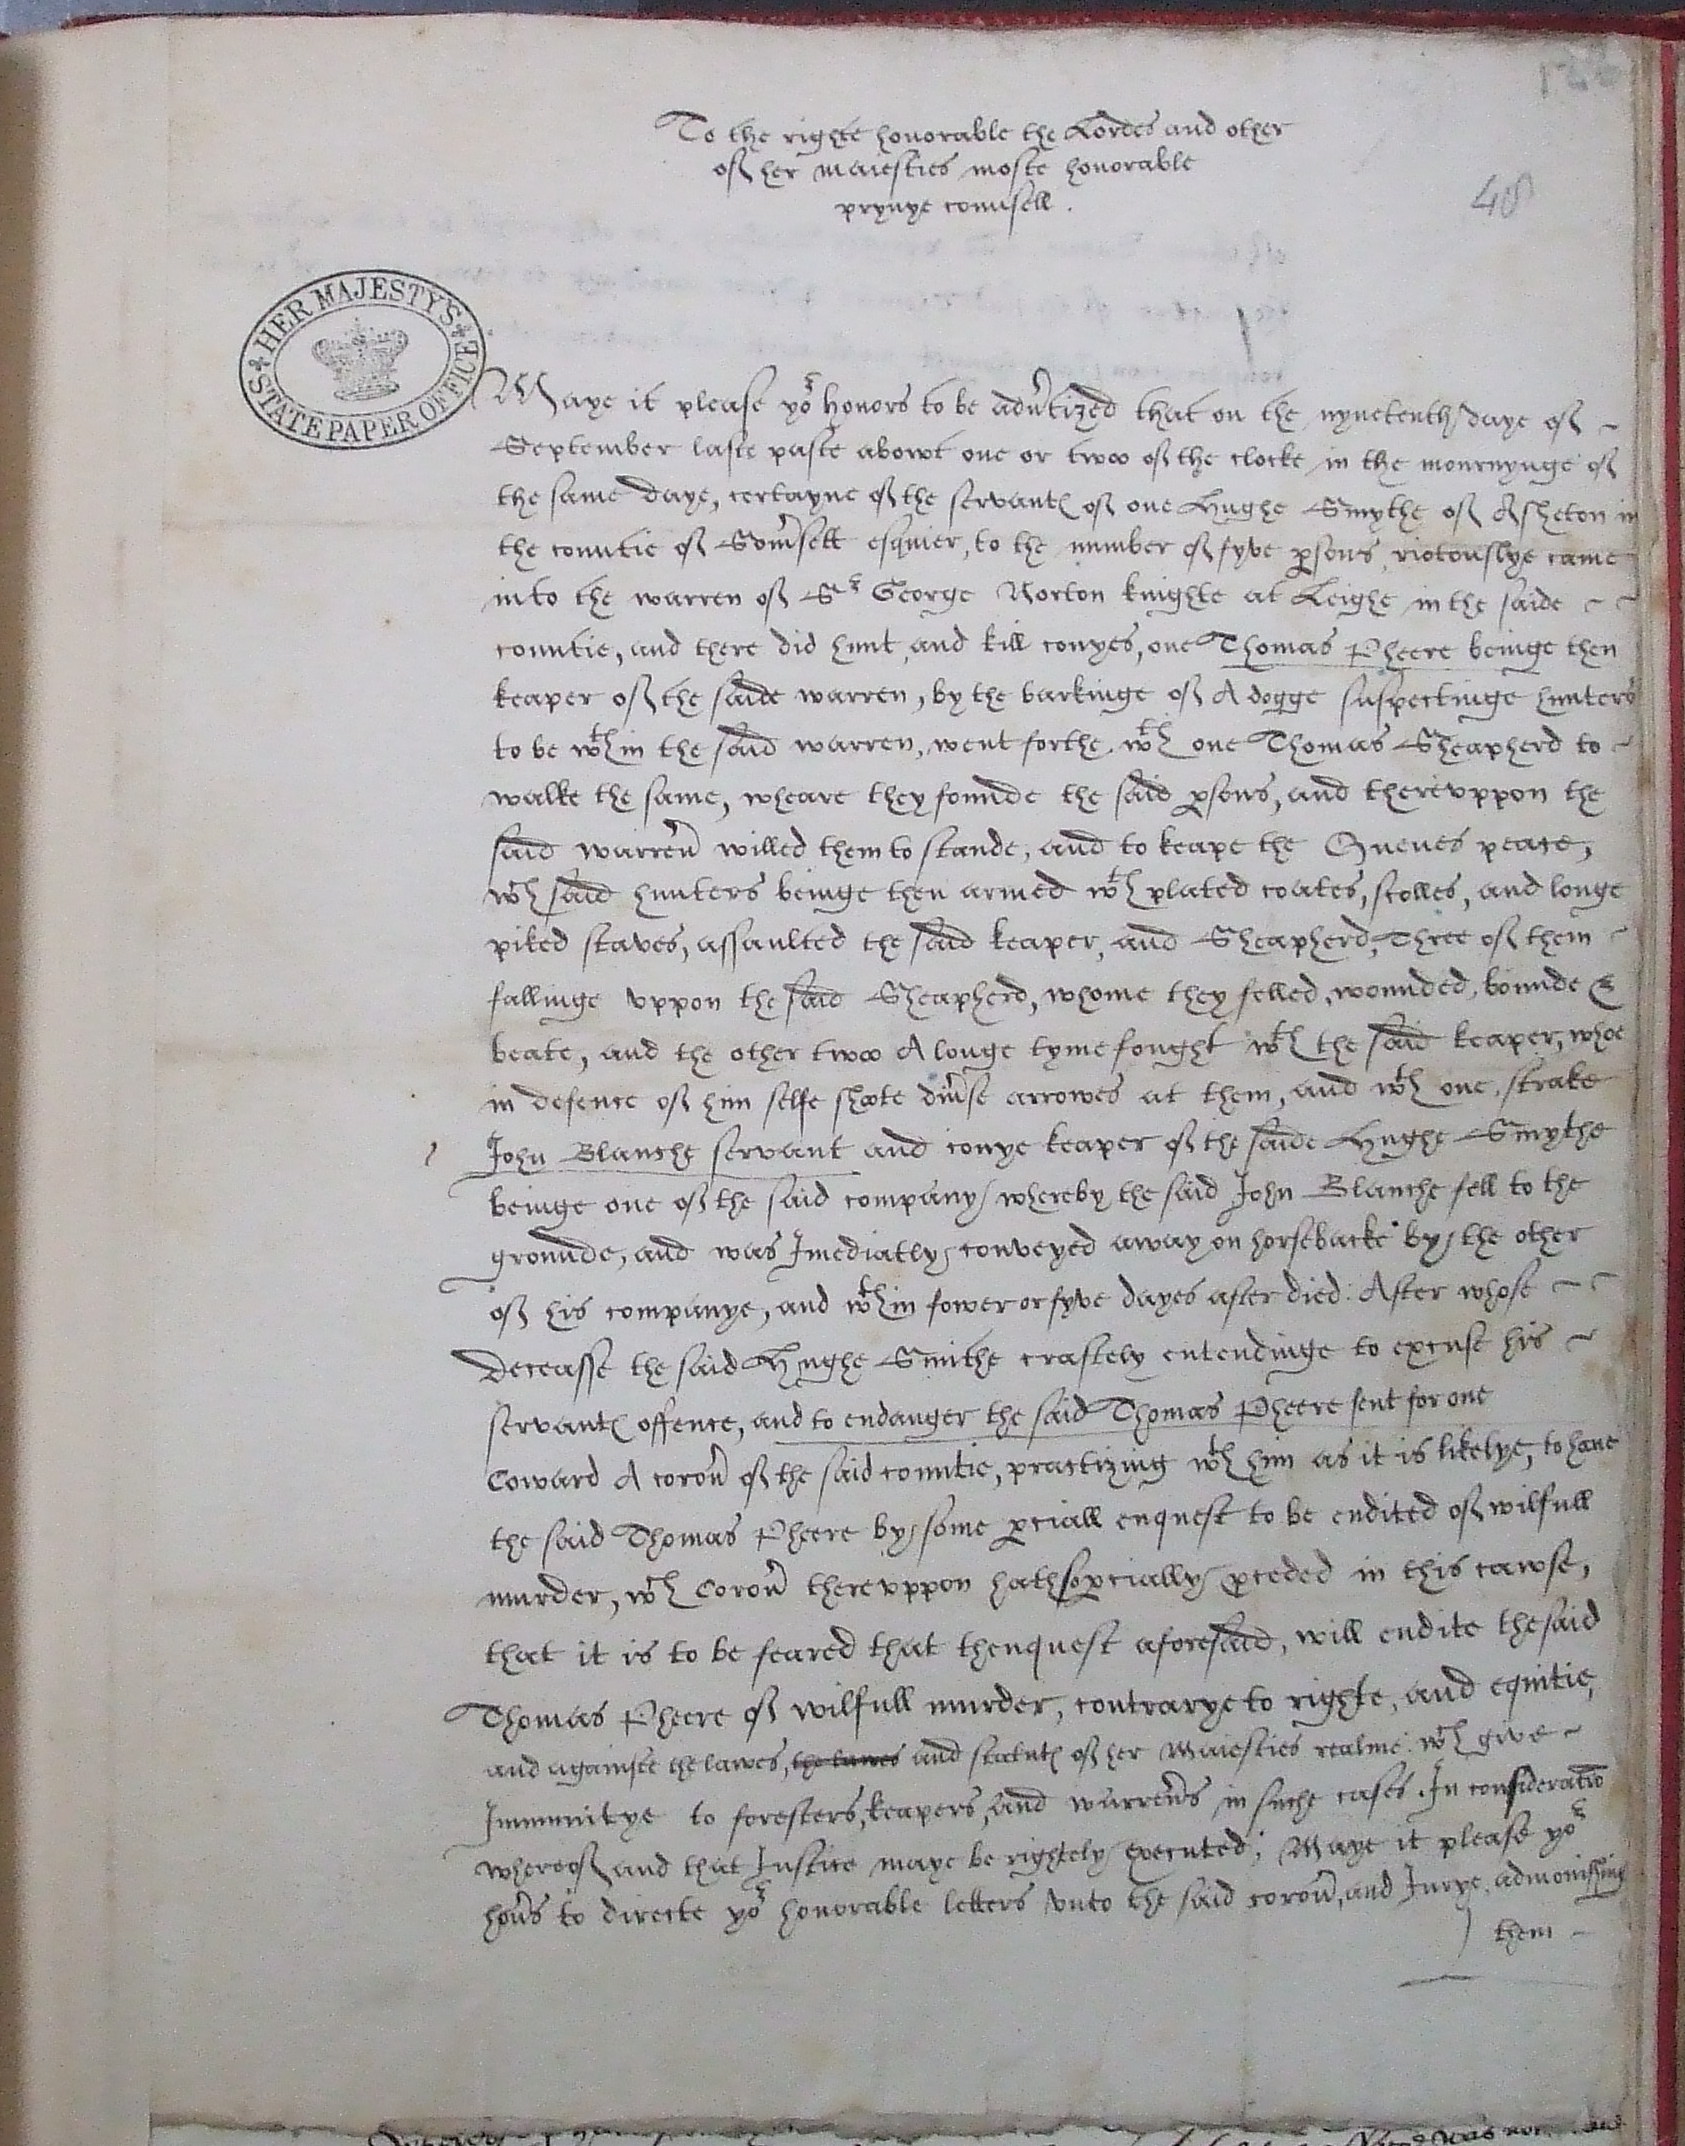 48
To the righte honorable the Lordes and other
of her maiesties moste honorable
pryvye counsell.
HER MAJESTY'S
STATE PAPER OFFICE
Maye it please yor honors to be adv'tized that on the nynetenth daye of
September laste paste abowt one or twoo of the clocke in the mournynge of
the same daye, certayne of the servantes of one Hughe Smythe of Asheton in
the countie of Som'sett esquier, to the number of fyve p'sons riotouslye came
into the warren of Sr George Norton knighte at Leighe in the saide
countie, and there did hunt, and kill conyes, one Thomas Pheere beinge then
keaper of the saide warren, by the barkinge of A dogge suspectinge hunters
to be wthin the said warren, went forthe wth one Thomas Sheapherd to
walke the same, wheare they founde the said p'sons, and therevppon the
said warren' willed them to stande, and to keape the Quenes peace,
wch said hunters beinge then armed wth plated coates, scolles, and longe
piked staves, assaulted the said keaper, and Sheapherd, Three of them
fallinge vppon the said Sheapherd, whome they felled, wounded, bounde &
beate, and the other twoo A longe tyme fought wth the said keaper, whoe
in defence of him selfe shote div'se arrowes at them, and wth one strake
John Blanche servant and conye keaper of the saide Hughe Smythe
beinge one of the said company whereby the said John Blanche fell to the
grounde, and was Imediatly conveyed away on horsebacke by the other
of his companye, and wthin fower or fyve dayes after died. After whose
deceasse the said Hughe Smithe craftely entendinge to excuse his
servantes offence, and to endanger the said Thomas Pheere sent for one
Coward A coron' of the said countie, practizing wth him as it is likelye, to have
the said Thomas Pheere by some p'ciall enquest to be endited of wilfull
murder, wch Coron' therevppon hath so p'cially p'ceded in this cawse,
that it is to be feared that thenquest aforesaid, will endite the said
Thomas Pheere of wilfull murder, contrarye to righte, and equitie,
and againste the lawes, the lawes and statutes of her Maiesties realme wch give
Immunitye to foresters, keapers, and warren's in suche cases. In consideratio
whereof and that Justice maye be rightely executed; Maye it please yor
hon's to directe yor honorable letters vnto the said coron', and Jurye admonishing
them